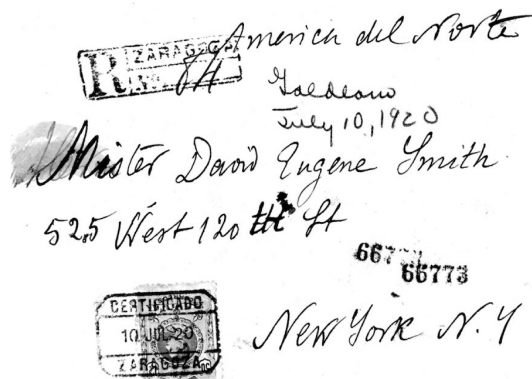 America del Norte
R ZARAGOZA
Galdeano
July 10, 1920
Mister David Eugene Smith
525 West 120 th St
66773
CERTIFICADO
10 JUL 20
ZARAGOZA
New York N. Y